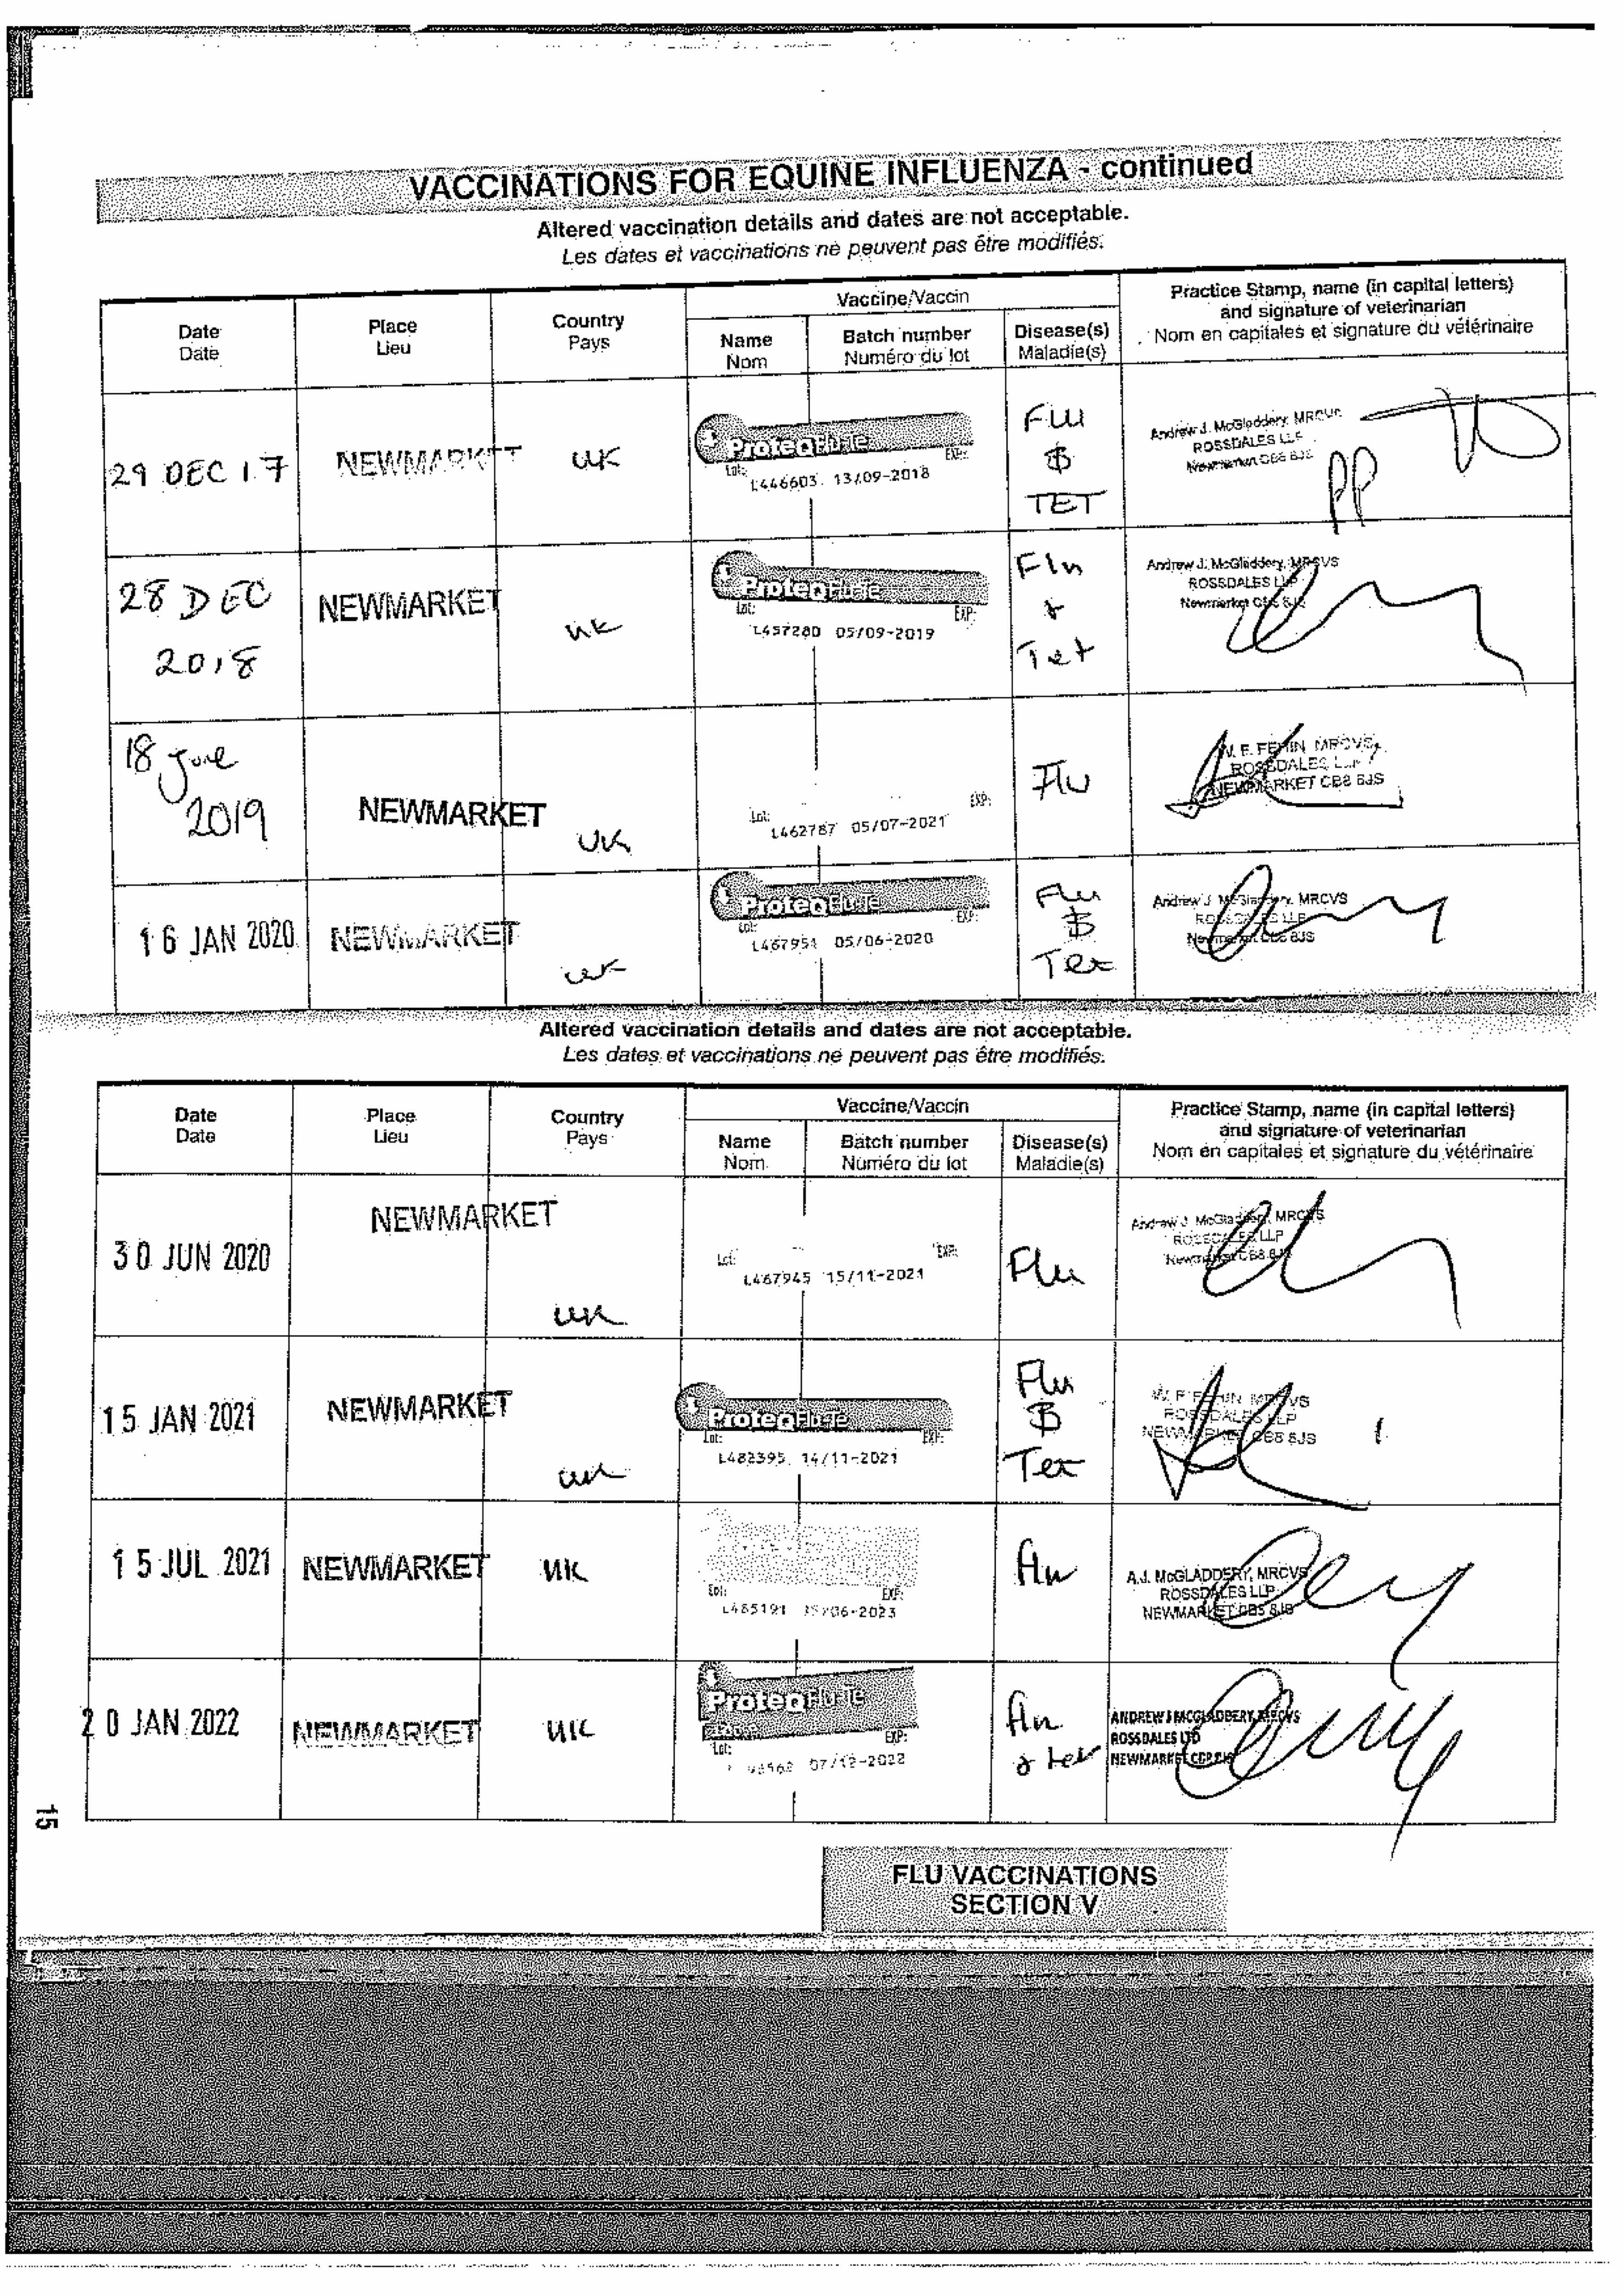 VACCINATIONS FOR EQUINE INFLUENZA - continued
Altered vaccination details and dates are not acceptable.
Les dates et vaccinations ne peuvent pas être modifiés.
Date
Date
Place
Lieu
Country
Pays
Vaccine/Vaccin
Name
Nom
Batch number
Numéro du lot
Disease(s)
Maladie(s)
Practice Stamp, name (in capital letters)
and signature of veterinarian
Nom en capitales et signature du vétérinaire
29 DEC 17
NEWMARKET
UK
ProteqFlu-Te
Lot: EXP:
L446603 13/09-2018
Flu
&
TET
Andrew J. McGladdery, MRCVS
ROSSDALES LLP
Newmarket CB8 8JS
PP
28 DEC
2018
NEWMARKET
UK
ProteqFlu-Te
Lot: EXP:
L457280 05/09-2019
Flu
&
Tet
Andrew J. McGladdery, MRCVS
ROSSDALES LLP
Newmarket CB8 8JS
18 June
2019
NEWMARKET
UK
Lot: EXP:
L462787 05/07-2021
Flu
ROSSDALES LLP
NEWMARKET CB8 8JS
16 JAN 2020
NEWMARKET
UK
ProteqFlu-Te
Lot: EXP:
L467951 05/06-2020
Flu
&
Tet
Andrew J. McGladdery, MRCVS
ROSSDALES LLP
Newmarket CB8 8JS
Altered vaccination details and dates are not acceptable.
Les dates et vaccinations ne peuvent pas être modifiés.
Date
Date
Place
Lieu
Country
Pays
Vaccine/Vaccin
Name
Nom
Batch number
Numéro du lot
Disease(s)
Maladie(s)
Practice Stamp, name (in capital letters)
and signature of veterinarian
Nom en capitales et signature du vétérinaire
30 JUN 2020
NEWMARKET
UK
Lot: EXP:
L467945 15/11-2021
Flu
Andrew J. McGladdery, MRCVS
ROSSDALES LLP
Newmarket CB8 8JS
15 JAN 2021
NEWMARKET
UK
ProteqFlu-Te
Lot: EXP:
L482395 14/11-2021
Flu
&
Tet
ROSSDALES LLP
NEWMARKET CB8 8JS
15 JUL 2021
NEWMARKET
UK
Lot: EXP:
L485191
Flu
A.J. McGLADDERY, MRCVS
ROSSDALES LLP
NEWMARKET CB8 8JS
20 JAN 2022
NEWMARKET
UK
ProteqFlu-Te
Lot: EXP:
07/12-2022
Flu
& tet
ANDREW J MCGLADDERY, MRCVS
ROSSDALES LTD
NEWMARKET CB8 8JS
15
FLU VACCINATIONS
SECTION V